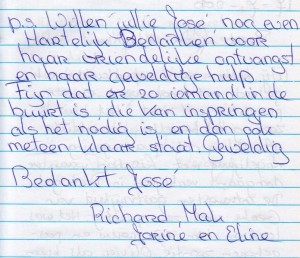 p.s Willen jullie José nog even
Hartelijk Bedanken voor
haar vriendelijke ontvangst
en haar geweldige hulp
Fijn dat er zo iemand in de
buurt is, die kan inspringen
als het nodig is, en dan ook
meteen klaar staat. Geweldig
Bedankt José
Richard, Mak
Jorine en Eline